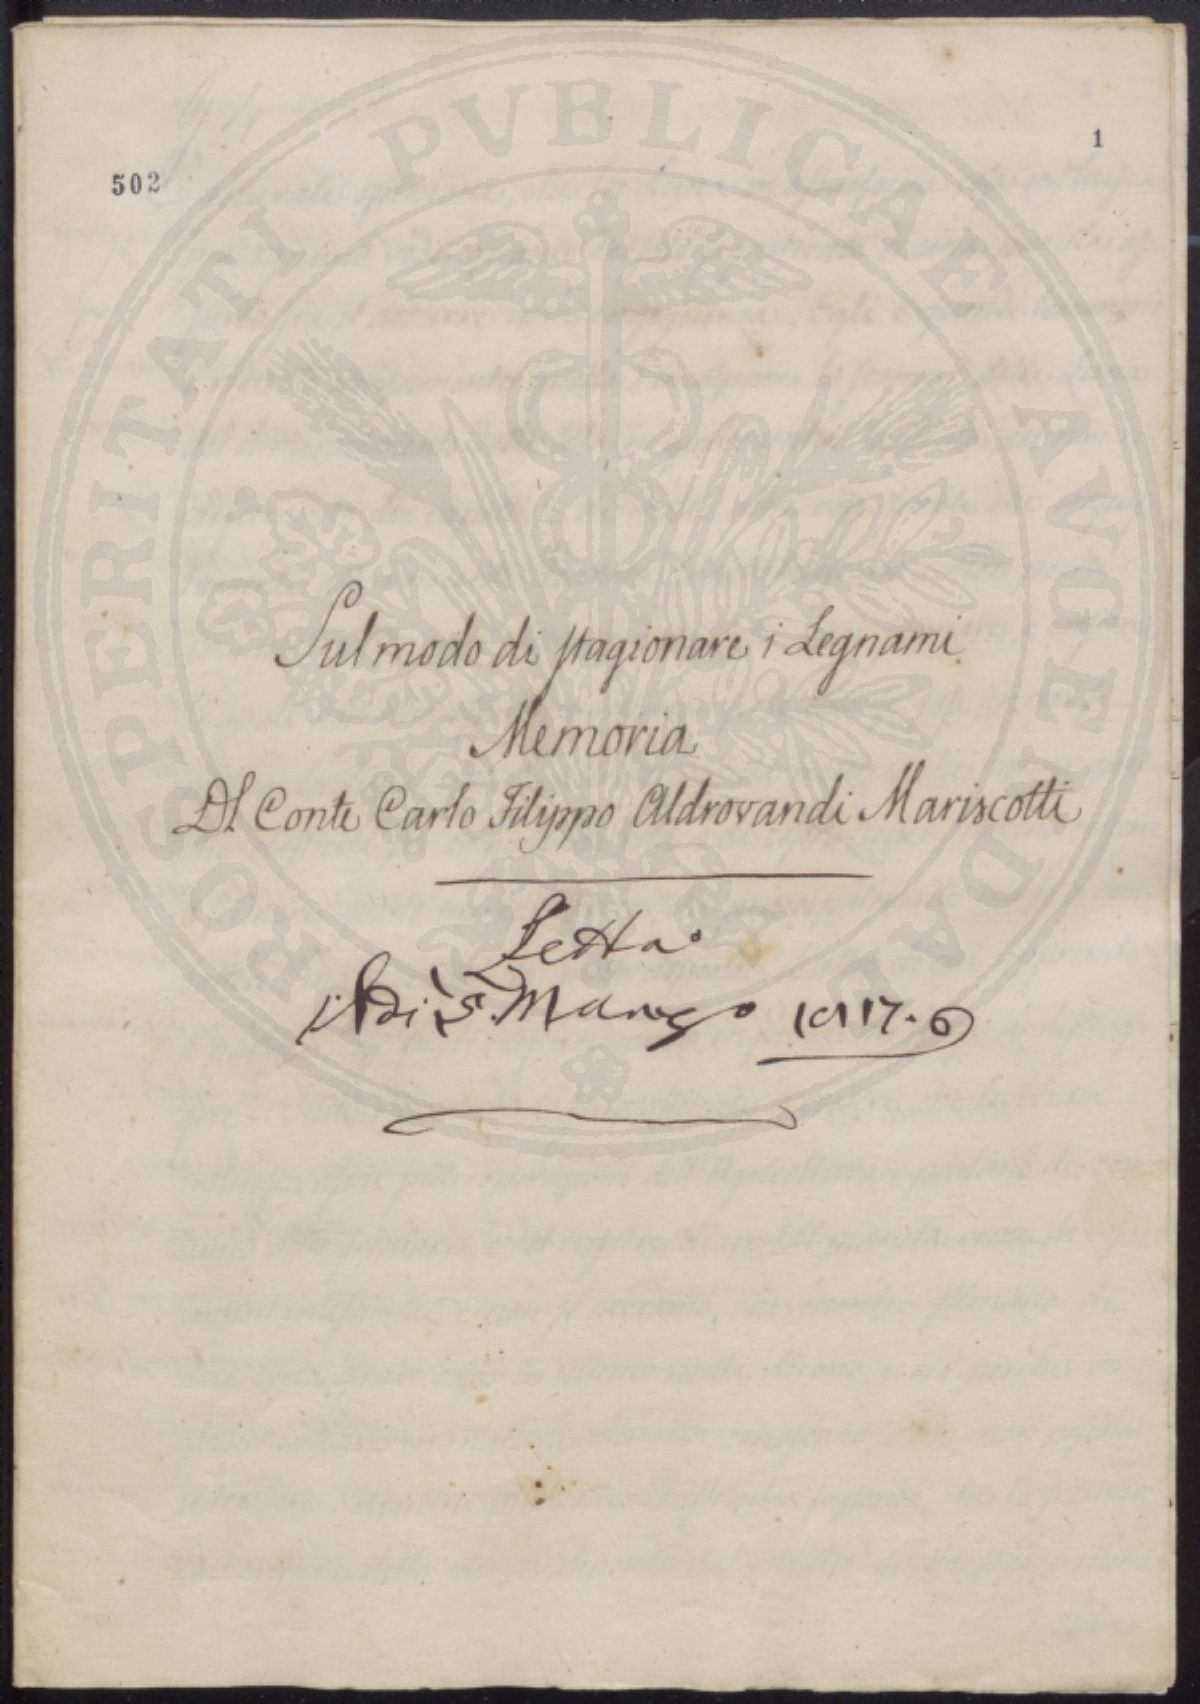 PROSPERITATI PVBLICAE AVGENDAE
1
502
Sul modo di stagionare i Legnami
Memoria
Del Conte Carlo Filippo Aldrovandi Mariscotti
Letta
Adi 5. Marzo 1817.